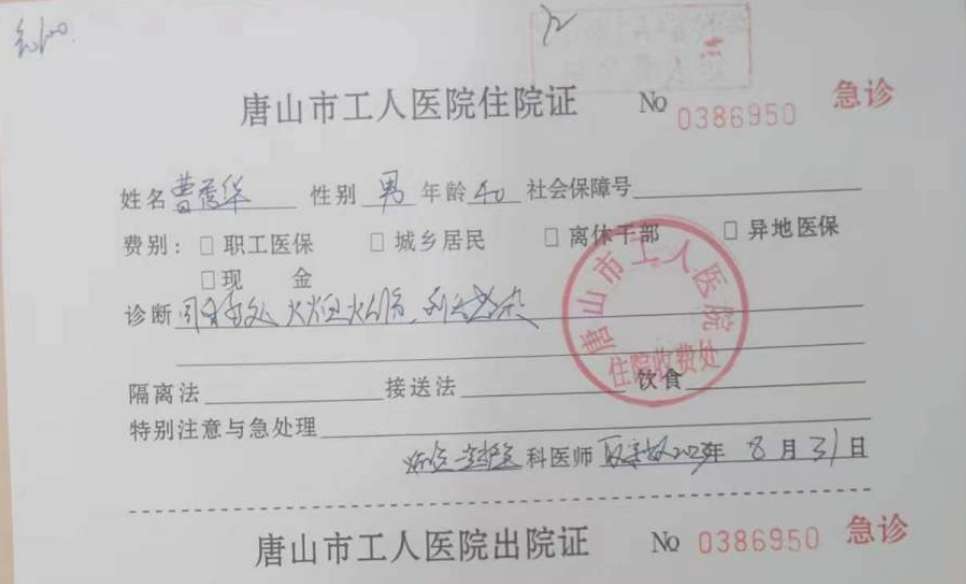 唐山市工人医院住院证 No 0386950 急诊
姓名 曹秀华 性别 男 年龄 40 社会保障号
费别: □ 职工医保 □ 城乡居民 □ 离休干部 □ 异地医保
□ 现 金
诊断
唐山市工人医院
住院收费处
隔离法 接送法 饮食
特别注意与急处理
科医师 2023年 8 月 31 日
唐山市工人医院出院证 No 0386950 急诊